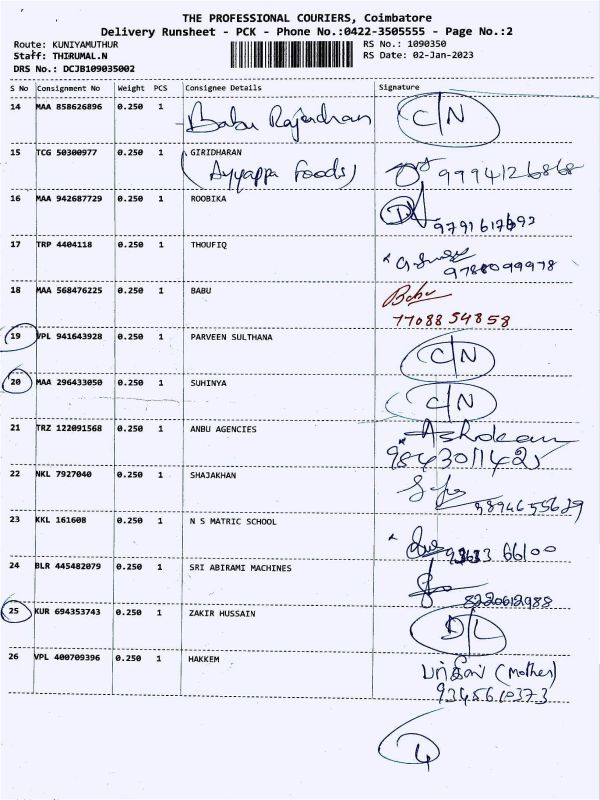 THE PROFESSIONAL COURIERS, Coimbatore
Delivery Runsheet - PCK - Phone No.:0422-3505555 - Page No.:2
Route: KUNIYAMUTHUR RS No.: 1090350
Staff: THIRUMAL.N RS Date: 02-Jan-2023
DRS No.: DCJB109035002
S No Consignment No Weight PCS Consignee Details Signature
14 MAA 858626896 0.250 1 Babu Rajendran C/N
15 TCG 50300977 0.250 1 GIRIDHARAN
(Ayyappa Foods) 9994126868
16 MAA 942687729 0.250 1 ROOBIKA
17 TRP 4404118 0.250 1 THOUFIQ
9788099978
18 MAA 568476225 0.250 1 BABU Babu
7708854858
19 VPL 941643928 0.250 1 PARVEEN SULTHANA C/N
20 MAA 296433050 0.250 1 SUHINYA C/N
21 TRZ 122091568 0.250 1 ANBU AGENCIES Ashokan
22 NKL 7927040 0.250 1 SHAJAKHAN
9894655639
23 KKL 161608 0.250 1 N S MATRIC SCHOOL
24 BLR 445482079 0.250 1 SRI ABIRAMI MACHINES
8220612988
25 KUR 694353743 0.250 1 ZAKIR HUSSAIN D/L
26 VPL 400709396 0.250 1 HAKKEM (Mother)
9345610373